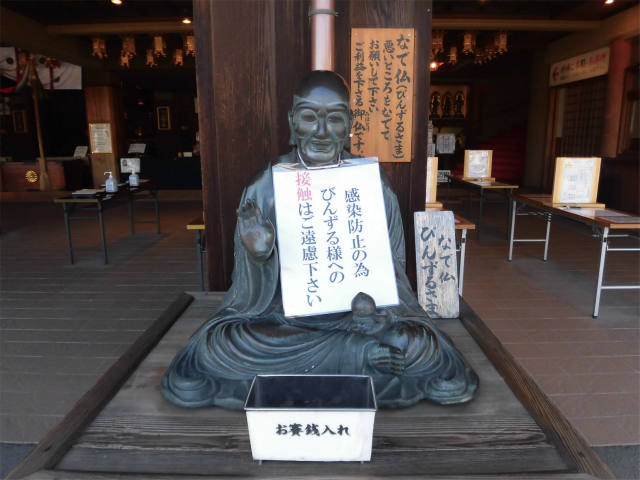 なで仏(びんずるさま)
悪いところをなでて
お願いして下さい
ご利益を下さる御仏
感染防止の為
びんずる様への
接触はご遠慮下さい
なで仏
びんずるさま
お賽銭入れ